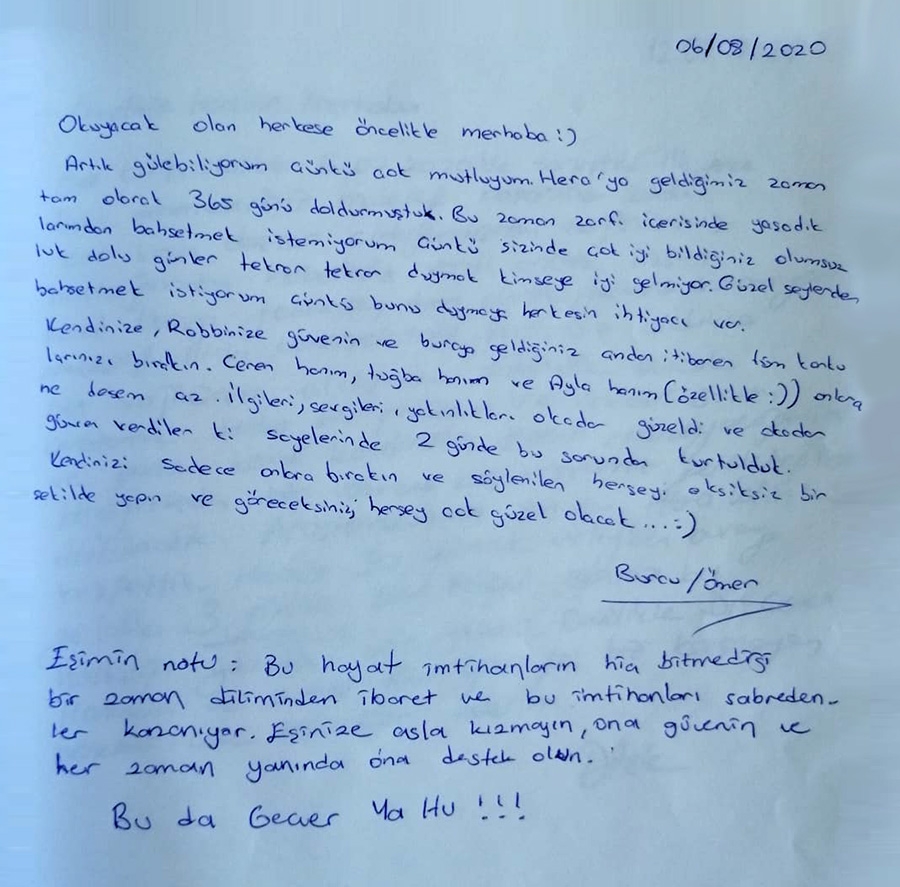 06/08/2020
Okuyacak olan herkese öncelikle merhaba :)
Artık gülebiliyorum çünkü çok mutluyum. Hera'ya geldiğimiz zaman
tam olarak 365 günü doldurmuştuk. Bu zaman zarfı içerisinde yaşadık
larımdan bahsetmek istemiyorum çünkü sizinde çok iyi bildiğiniz olumsuz
luk dolu günler tekrar tekrar duymak kimseye iyi gelmiyor. Güzel şeylerden
bahsetmek istiyorum çünkü bunu duymaya herkesin ihtiyacı var.
Kendinize, Robbinize güvenin ve buraya geldiğiniz andan itibaren tüm korku
larınızı bırakın. Ceren hanım, tuğba hanım ve Ayla hanım (özellikle :)) onlara
ne desem az. İlgileri, sevgileri, yakınlıkları okadar güzeldi ve okadar
güven verdiler ki sayelerinde 2 günde bu sorundan kurtulduk.
Kendinizi sadece onlara bırakın ve söylenilen herşeyi eksiksiz bir
şekilde yapın ve göreceksiniz herşey çok güzel olacak ...:)
Burcu/Ömer
Eşimin notu : Bu hayat imtihanların hiç bitmediği
bir zaman diliminden ibaret ve bu imtihanları sabreden-
ler kazanıyor. Eşinize asla kızmayın, ona güvenin ve
her zaman yanında ona destek olun.
Bu da Geçer Ya Hu !!!